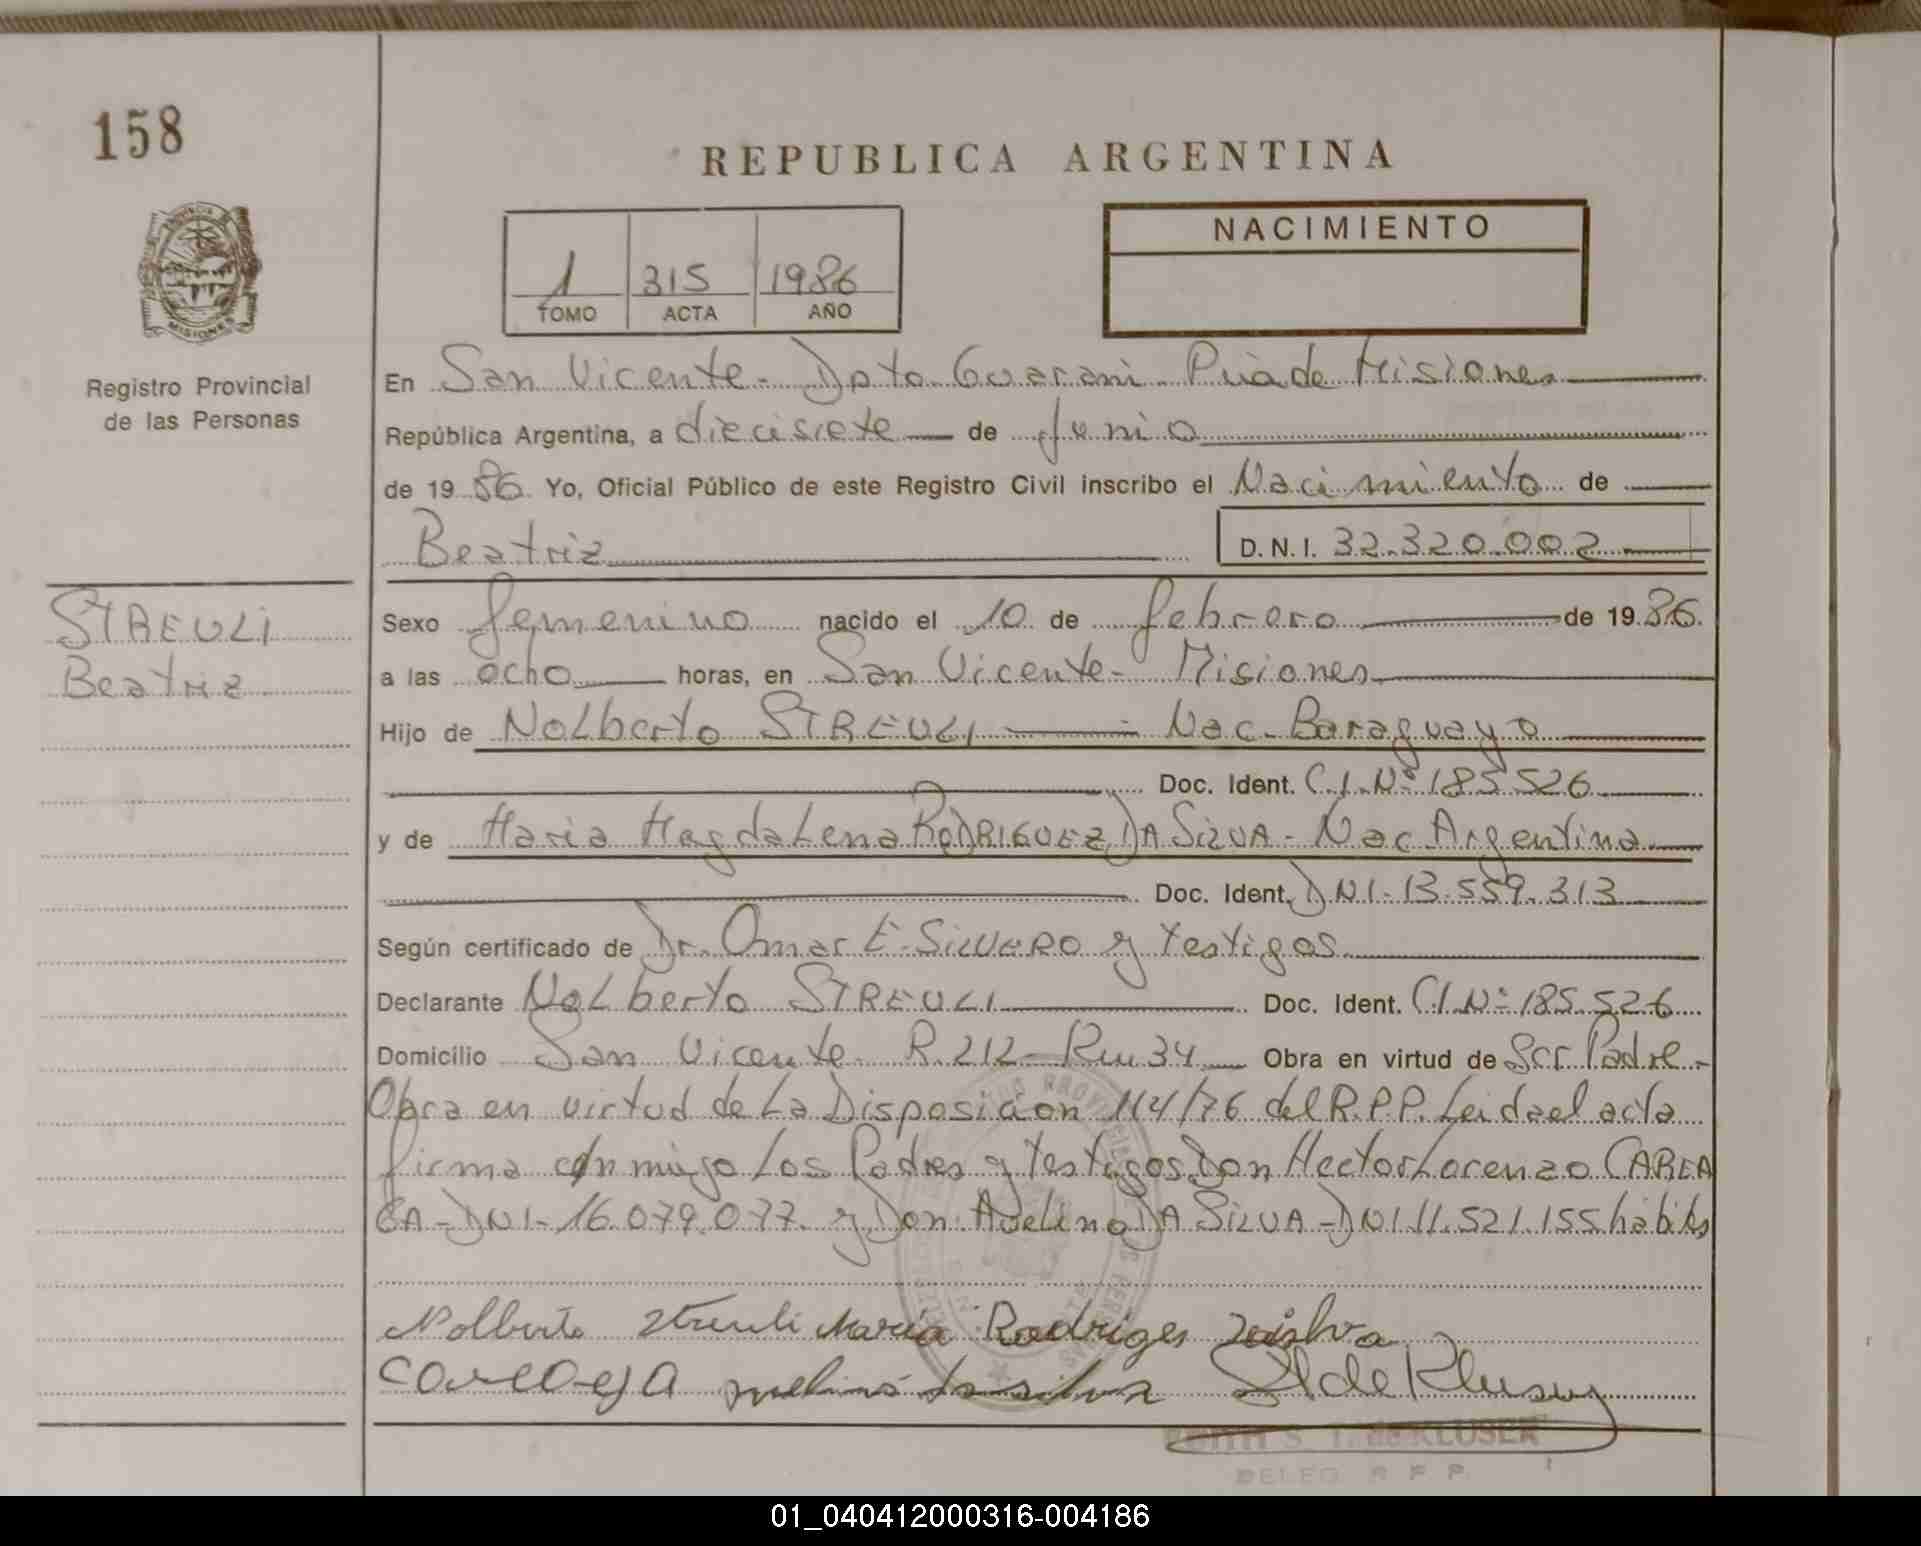 158
REPUBLICA ARGENTINA
NACIMIENTO
1 315 1986
TOMO ACTA AÑO
MISIONES
Registro Provincial
de las Personas
En San Vicente - Dpto Guarani Pcia de Misiones
República Argentina, a diecisiete de Junio
de 19 86 Yo, Oficial Público de este Registro Civil inscribo el Nacimiento de
Beatriz D.N.I. 32.320.002
STREULI
Beatriz
Sexo femenino nacido el 10 de febrero de 19 86.
a las ocho horas, en San Vicente - Misiones
Hijo de Nolberto STREULI Nac. Paraguayo
Doc. Ident. C.I.Nº 185.526
y de Maria Magdalena RODRIGUEZ DA SILVA - Nac Argentina
Doc. Ident. DNI - 13.559.313
Según certificado de Dr. Omar E. SILVERO y testigos
Declarante Nolberto STREULI Doc. Ident. C.I.Nº 185.526
Domicilio San Vicente R. 212 - Km 34 Obra en virtud de Ser Padre -
Obra en virtud de La Disposición 114/76 del R.P.P. Leida el acta
firma conmigo los Padres y Testigos Don Hector Lorenzo CAREA
GA - DNI - 16.079.077. y Don Avelino DA SILVA - DNI 11.521.155 habiles
Nolberto Streuli Maria Rodriges da silva
Careaga Avelino da silva
EDITH S. T. de KLUSER
DELEG. R P P
01_040412000316-004186